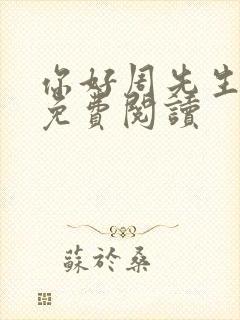 你好周先生
免費閱讀
蘇於桑